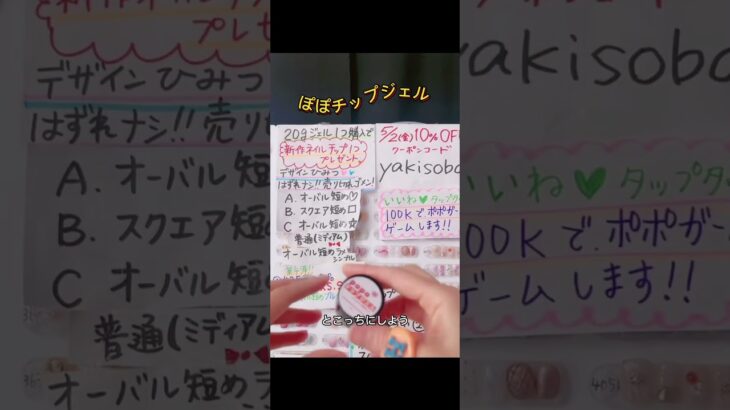 ぽぽチップジェル
20gジェル1つ購入で
新作ネイルチップ1つ
プレゼント
デザインひみつ
はずれナシ!!売り切れゴメン!
A. オーバル短め♡
B. スクエア短め□
C オーバル短め☆
普通(ミディアム)
オーバル短めラメ
シンプル
5/2(金)10%OFF
クーポンコード
yakisoba
いいね♥タップタ
100Kでポポガ
ゲームします!!
とこっちにしよう
プレゼント
デザインひみつ
はずれナシ!!売り
A. オーバル短
B. スクエア短
C オーバル短
普通(ミディアム
オーバル短め
yakisoba
いいね♥タップタ
100Kで、ポポガ
ゲームします!!
4051